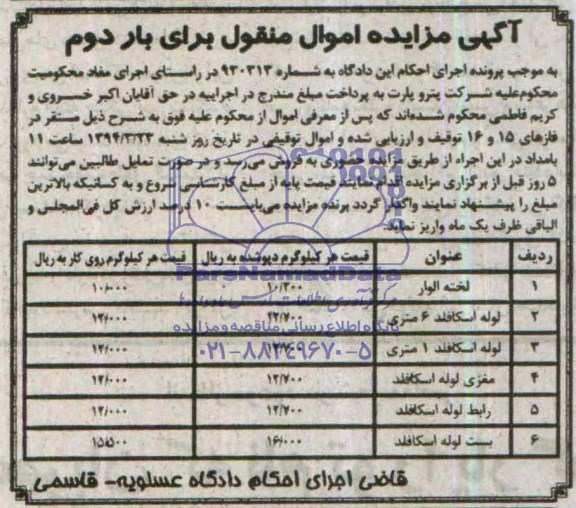 آگهی مزایده اموال منقول برای بار دوم
به موجب پرونده اجرای احکام این دادگاه به شماره ۹۳۰۳۱۳ در راستای اجرای مفاد محکومیت
محکوم‌علیه شرکت پترو پارت به پرداخت مبلغ مندرج در اجراییه در حق آقایان اکبر خسروی و
کریم فاطمی محکوم شده‌اند که پس از معرفی اموال از محکوم علیه فوق به شرح ذیل مستقر در
فازهای ۱۵ و ۱۶ توقیف و ارزیابی شده و اموال توقیفی در تاریخ روز شنبه ۱۳۹۴/۳/۲۳ ساعت ۱۱
بامداد در این اجراء از طریق مزایده حضوری به فروش می‌رسد و در صورت تمایل طالبین می‌توانند
۵ روز قبل از برگزاری مزایده اقدام نمایند قیمت پایه از مبلغ کارشناسی شروع و به کسانیکه بالاترین
مبلغ را پیشنهاد نمایند واگذار گردد برنده مزایده می‌بایست ۱۰ درصد ارزش کل فی‌المجلس و
الباقی ظرف یک ماه واریز نماید.
ردیف عنوان قیمت هر کیلوگرم دپوشده به ریال قیمت هر کیلوگرم روی کار به ریال
۱ لخته الوار ۱۰/۳۰۰ ۱۰/۰۰۰
۲ لوله اسکافلد ۶ متری ۲۲/۷۰۰ ۱۲/۰۰۰
۳ لوله اسکافلد ۱ متری ۱۲/۷۰۰ ۱۲/۰۰۰
۴ مغزی لوله اسکافلد ۱۲/۷۰۰ ۱۲/۰۰۰
۵ رابط لوله اسکافلد ۱۲/۷۰۰ ۱۲/۰۰۰
۶ بست لوله اسکافلد ۱۶/۰۰۰ ۱۵/۵۰۰
قاضی اجرای احکام دادگاه عسلویه- قاسمی
ParsNamadData
پایگاه اطلاع رسانی مناقصه و مزایده
۰۲۱-۸۸۳۴۹۶۷۰-۵